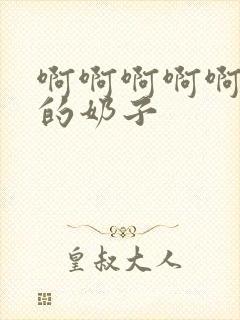 啊啊啊啊啊
的奶子
皇叔大人